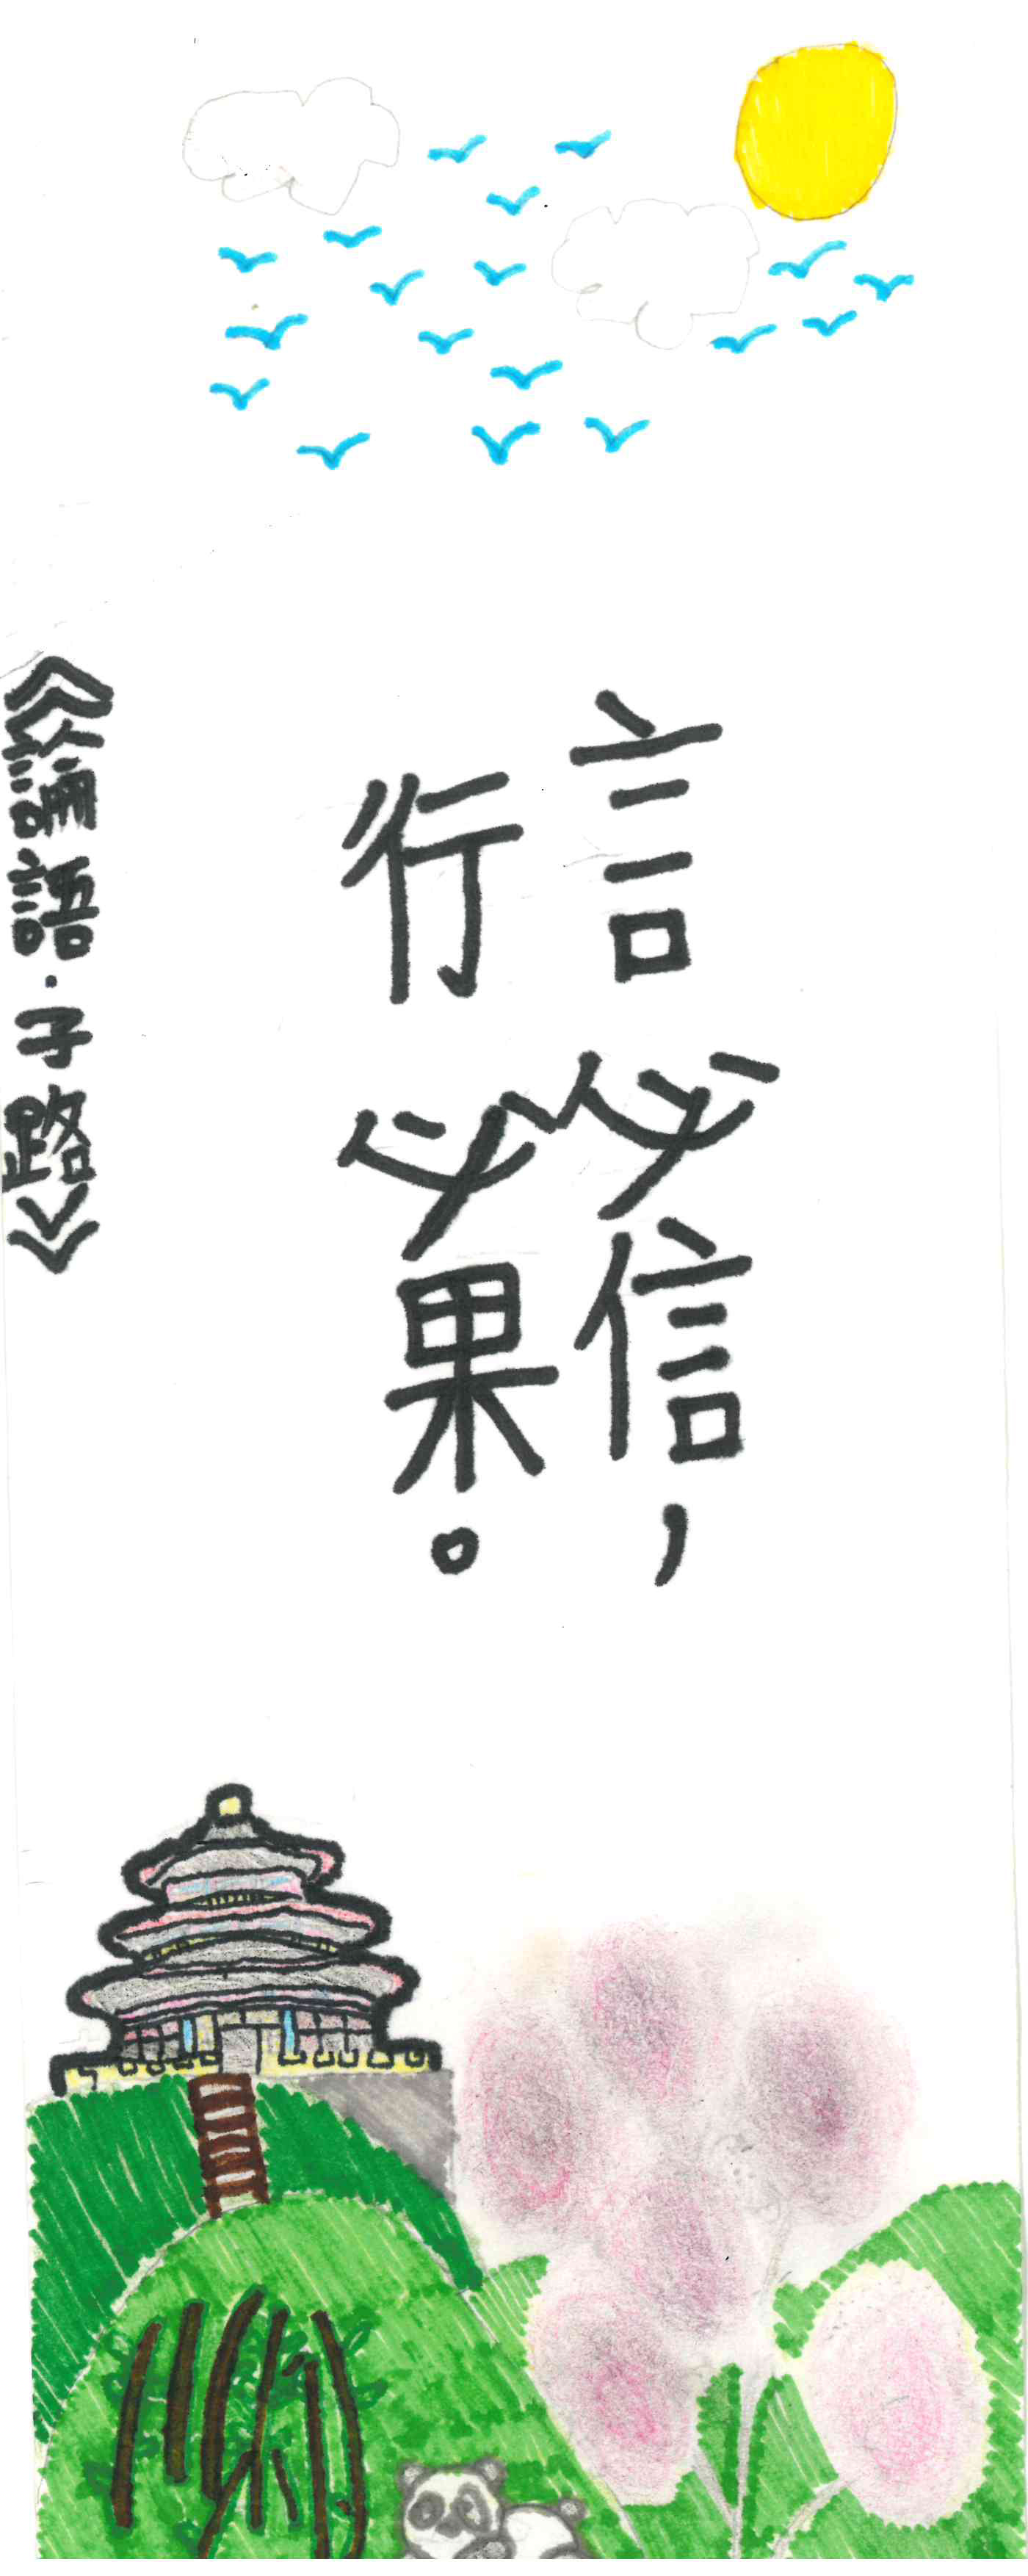 言必信，
行必果。
《論語·子路》